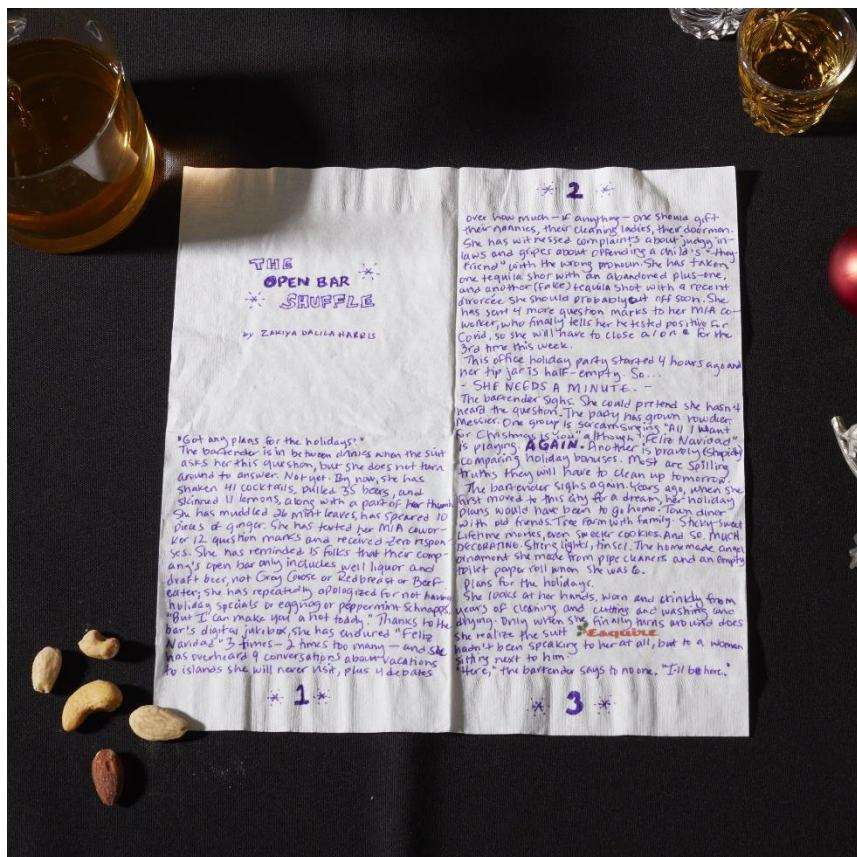 THE
OPEN BAR
SHUFFLE
by ZAKIYA DALILA HARRIS
"Got any plans for the holidays?"
The bartender is in between drinks when the suit
asks her this question, but she does not turn
around to answer. Not yet. By now, she has
shaken 41 cocktails, pulled 35 beers, and
skinned 11 lemons, along with a part of her thumb.
She has muddled 26 mint leaves, has speared 10
pieces of ginger. She has texted her MIA cowor-
ker 12 question marks and received zero respon-
ses. She has reminded 15 folks that their comp-
any's open bar only includes well liquor and
draft beer, not Grey Goose or Redbreast or Beef-
eater; she has repeatedly apologized for not having
holiday specials or eggnog or peppermint schnapps.
"But I can make you a hot toddy." Thanks to the
bar's digital jukebox, she has endured "Feliz
Navidad" 3 times - 2 times too many - and she
has overheard 9 conversations about vacations
to islands she will never visit, plus 4 debates
1
2
over how much - if anything - one should gift
their nannies, their cleaning ladies, their doorman.
She has witnessed complaints about judgy in-
laws and gripes about offending a child's "they-
friend" with the wrong pronoun. She has taken
one tequila shot with an abandoned plus-one,
and another (fake) tequila shot with a recent
divorcée she should probably cut off soon. She
has sent 4 more question marks to her MIA co-
worker, who finally tells her he tested positive for
Covid, so she will have to close alone for the
3rd time this week.
This office holiday party started 4 hours ago and
her tip jar is half-empty. So...
- SHE NEEDS A MINUTE. -
The bartender sighs. She could pretend she hasn't
heard the question. The party has grown rowdier.
Messier. One group is scream singing "All I Want
for Christmas is You" although "Feliz Navidad"
is playing. AGAIN. Another is bravely (stupidly)
comparing holiday bonuses. Most are spilling
truths they will have to clean up tomorrow.
The bartender sighs again. Years ago, when she
first moved to this city for a dream, her holiday
plans would have been to go home. Town diner
with old friends. Tree farm with family. Sticky-sweet
Lifetime movies, even sweeter cookies. And so. MUCH.
DECORATING. String lights, tinsel. The homemade angel
ornament she made from pipe cleaners and an empty
toilet paper roll when she was 6.
Plans for the holidays.
She looks at her hands, worn and crinkly from
years of cleaning and cutting and washing and
drying. Only when she finally turns around does
she realize the suit
Esquire
hadn't been speaking to her at all, but to a woman
sitting next to him.
"Here," the bartender says to no one. "I'll be here."
3